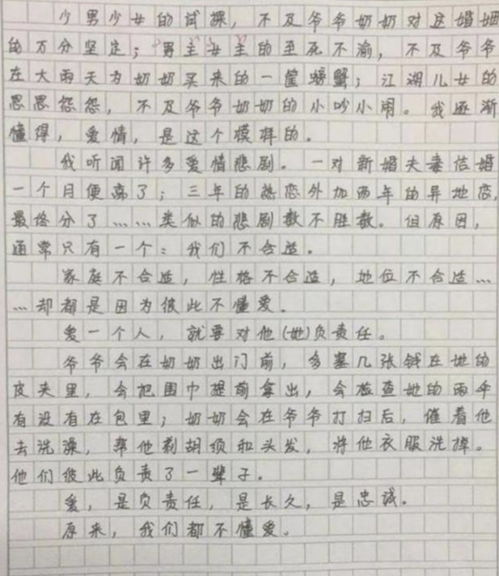 少男少女的试探，不及爷爷奶奶对这婚姻
的万分坚定；男主女主的至死不渝，不及爷爷
在大雨天为奶奶买来的一筐螃蟹；江湖儿女的
恩恩怨怨，不及爷爷奶奶的小吵小闹。我逐渐
懂得，爱情，是这个模样的。
我听闻许多爱情悲剧。一对新婚夫妻结婚
一个月便离了；三年的热恋外加两年的异地恋，
最终分了……类似的悲剧数不胜数。但原因，
通常只有一个：我们不合适。
家庭不合适，性格不合适，地位不合适…
…却都是因为彼此不懂爱。
爱一个人，就要对他(她)负责任。
爷爷会在奶奶出门前，多塞几张钱在她的
皮夹里，会把围巾提前拿出，会检查她的雨伞
有没有在包里；奶奶会在爷爷打扫后，催着他
去洗澡，帮他剃胡须和头发，将他衣服洗掉。
他们彼此负责了一辈子。
爱，是负责任，是长久，是忠诚。
原来，我们都不懂爱。